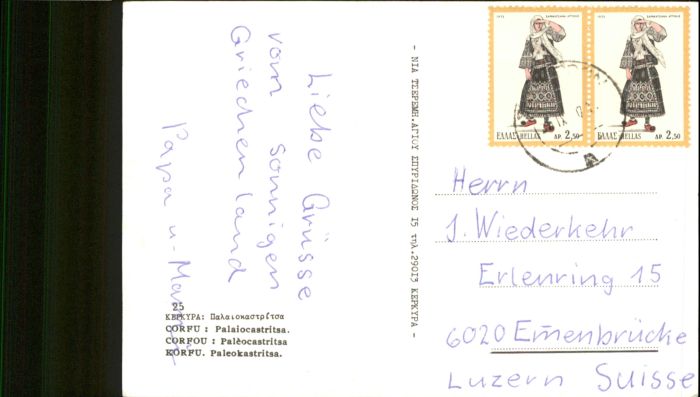 Liebe Grüsse
vom sonnigen
Griechenland
Papa u. Mama
25
ΚΕΡΚΥΡΑ: Παλαιοκαστρίτσα
CORFU : Palaiocastritsa.
CORFOU : Palèocastritsa
KORFU. Paleokastritsa.
- ΝΙΑ ΤΣΕΡΕΜΗ.ΑΓΙΟΥ ΣΠΥΡΙΔΩΝΟΣ 15 τηλ.29013 ΚΕΡΚΥΡΑ -
ΕΛΛΑΣ-HELLAS ΔΡ. 2,50
ΕΛΛΑΣ-HELLAS ΔΡ. 2,50
Herrn
J. Wiederkehr
Erlenring 15
6020 Emenbrücke
Luzern Suisse